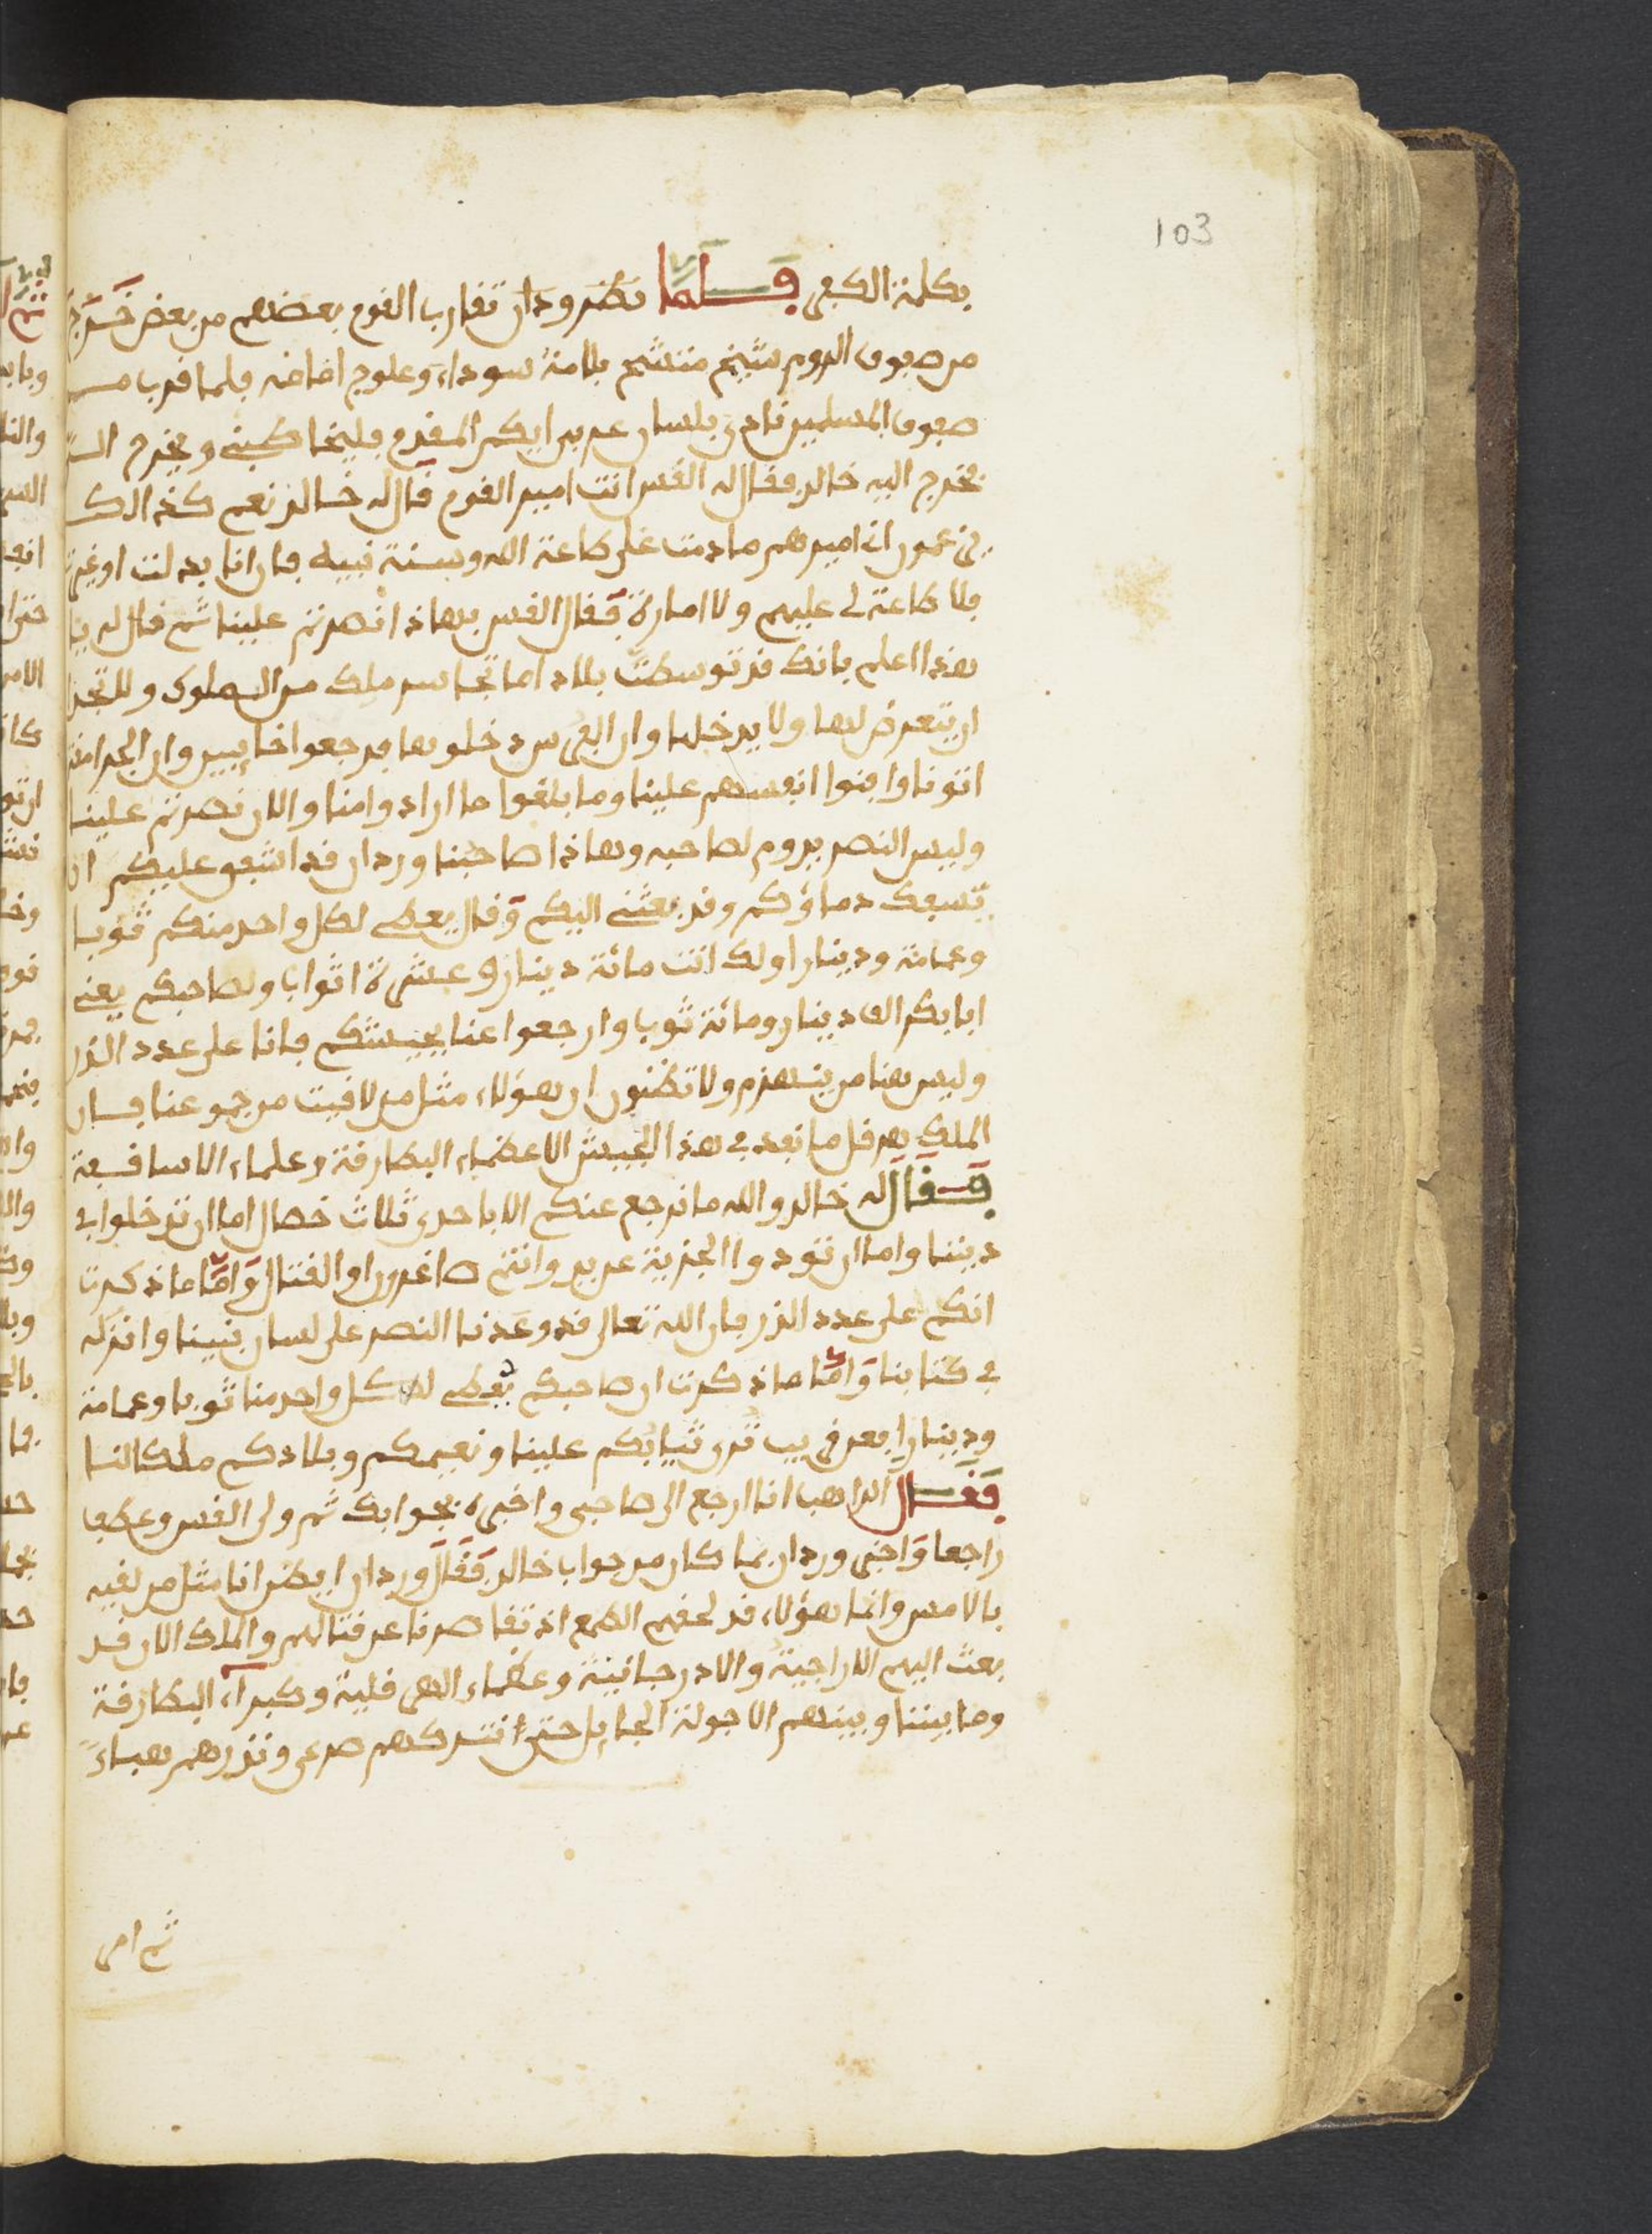 103
بكلمة الكفر فلما نظر وردان تقارب القوم بعضهم من بعض خرج
من صفوف الروم شيخ متشح بلامة سوداء وعلوج امامه فلما قرب من
صفوف المسلمين نادى بلسان عربي ايكم المقدم فليخاطبني ويخرج الي
فخرج اليه خالد فقال له القس انت امير القوم قال له خالد نعم كذالك
يزعمون اني اميرهم ما دمت على طاعة الله وسنة نبيه فان انا بدلت او غيرت
فلا طاعة لي عليهم ولا امارة فقال القس بهاذا نصرتم علينا ثم قال له يا
هذا اعلم بانك قد توسطت بلاد اما تجاسر ملك من الملوك
ان يتعرض لها ولا يدخلها وان الفرس دخلوها فرجعوا خايبين وان الجرامقة
اتونا وافنوا انفسهم علينا وما بلغوا ما ارادوا منا والان نصرتم علينا
وليس النصر يدوم لصاحبه وهاذا صاحبنا وردان قد اشفق عليكم ان
تسفك دماؤكم وقد بعثني اليكم وقال يعطى لكل واحد منكم ثوبا
وعمامة ودينارا ولك انت مائة دينار وعشرة اثوابا ولصاحبكم يعني
ابا بكر الف دينار ومائة ثوبا وارجعوا عنا بجيشكم فانا على عدد الذر
وليس هنا من ينهزم ولا تظنون ان هؤلاء مثل من لاقيت من جموعنا فان
الملك هرقل ما نفد في هذا الجيش الا عظماء البطارقة وعلماء الاساقفة
فقال له خالد والله ما نرجع عنكم الا باحدى ثلاث خصال اما ان تدخلوا في
ديننا واما ان تودوا الجزية عن يد وانتم صاغرون او القتال واما ما ذكرت
انكم على عدد الذر فان الله تعالى قد وعدنا النصر على لسان نبينا وانزله
في كتابنا واما ما ذكرت ان صاحبكم يعطى لكل واحد منا ثوبا وعمامة
ودينارا فعن قريب ترى ثيابكم علينا ونعيمكم وبلادكم ملكا لنا
فقال الراهب انا ارجع الى صاحبي واخبره بجوابك ثم ولى القس وعطف
راجعا واخبر وردان بما كان من جواب خالد فقال وردان ايظن انا مثل من لقيه
بالامس وانما هؤلاء قد لحقهم الطمع اذ تقاصرنا عن قتالهم والملك الان قد
بعث اليهم الاراجية والادرجانية وعظماء الهرقلية وكبراء البطارقة
وما بيننا وبينهم الا جولة الجايل حتى نتركهم صرعى ونذرهم هباء
ثم امر